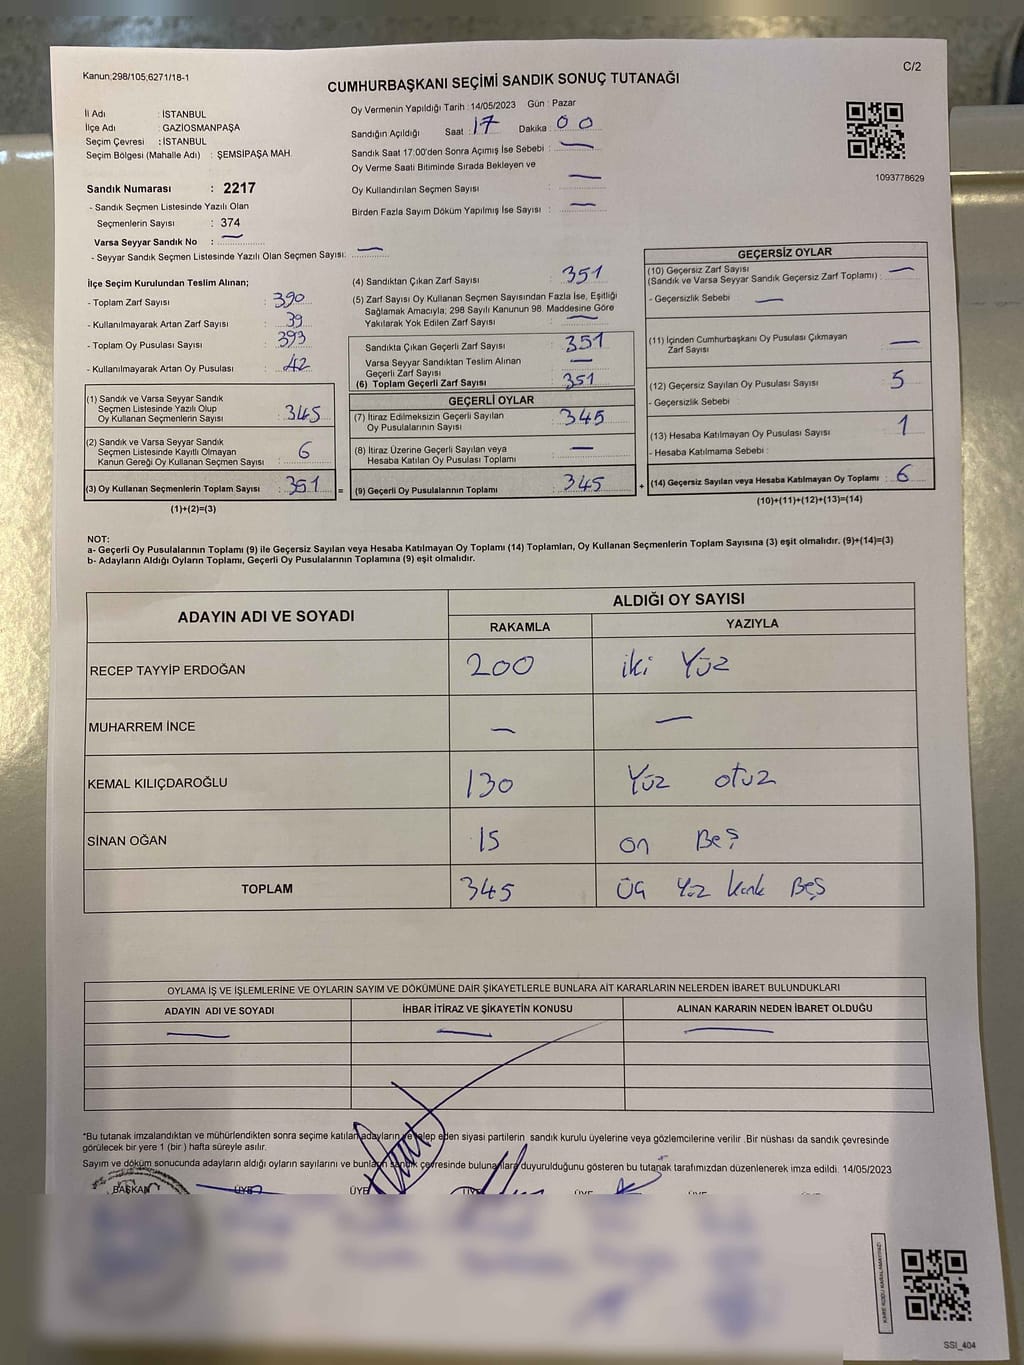 Kanun:298/105,6271/18-1
C/2
CUMHURBAŞKANI SEÇİMİ SANDIK SONUÇ TUTANAĞI
İl Adı : İSTANBUL
İlçe Adı : GAZİOSMANPAŞA
Seçim Çevresi : İSTANBUL
Seçim Bölgesi (Mahalle Adı) : ŞEMSİPAŞA MAH.
Sandık Numarası : 2217
- Sandık Seçmen Listesinde Yazılı Olan
Seçmenlerin Sayısı : 374
Varsa Seyyar Sandık No : —
- Seyyar Sandık Seçmen Listesinde Yazılı Olan Seçmen Sayısı: —
Oy Vermenin Yapıldığı Tarih : 14/05/2023 Gün : Pazar
Sandığın Açıldığı Saat : 17 Dakika : 00
Sandık Saat 17:00'den Sonra Açımış İse Sebebi : —
Oy Verme Saati Bitiminde Sırada Bekleyen ve
Oy Kullandırılan Seçmen Sayısı : —
Birden Fazla Sayım Döküm Yapılmış İse Sayısı : —
1093778629
İlçe Seçim Kurulundan Teslim Alınan;
- Toplam Zarf Sayısı : 390
- Kullanılmayarak Artan Zarf Sayısı : 39
- Toplam Oy Pusulası Sayısı : 393
- Kullanılmayarak Artan Oy Pusulası : 42
(1) Sandık ve Varsa Seyyar Sandık
Seçmen Listesinde Yazılı Olup
Oy Kullanan Seçmenlerin Sayısı : 345
(2) Sandık ve Varsa Seyyar Sandık
Seçmen Listesinde Kayıtlı Olmayan
Kanun Gereği Oy Kullanan Seçmen Sayısı : 6
(3) Oy Kullanan Seçmenlerin Toplam Sayısı : 351 =
(1)+(2)=(3)
(4) Sandıktan Çıkan Zarf Sayısı : 351
(5) Zarf Sayısı Oy Kullanan Seçmen Sayısından Fazla İse, Eşitliği
Sağlamak Amacıyla; 298 Sayılı Kanunun 98. Maddesine Göre
Yakılarak Yok Edilen Zarf Sayısı : —
Sandıkta Çıkan Geçerli Zarf Sayısı : 351
Varsa Seyyar Sandıktan Teslim Alınan
Geçerli Zarf Sayısı : —
(6) Toplam Geçerli Zarf Sayısı : 351
GEÇERLİ OYLAR
(7) İtiraz Edilmeksizin Geçerli Sayılan
Oy Pusulalarının Sayısı : 345
(8) İtiraz Üzerine Geçerli Sayılan veya
Hesaba Katılan Oy Pusulası Toplamı : —
(9) Geçerli Oy Pusulalarının Toplamı : 345 +
GEÇERSİZ OYLAR
(10) Geçersiz Zarf Sayısı
(Sandık ve Varsa Seyyar Sandık Geçersiz Zarf Toplamı) : —
- Geçersizlik Sebebi : —
(11) İçinden Cumhurbaşkanı Oy Pusulası Çıkmayan
Zarf Sayısı : —
(12) Geçersiz Sayılan Oy Pusulası Sayısı : 5
- Geçersizlik Sebebi :
(13) Hesaba Katılmayan Oy Pusulası Sayısı : 1
- Hesaba Katılmama Sebebi :
(14) Geçersiz Sayılan veya Hesaba Katılmayan Oy Toplamı : 6
(10)+(11)+(12)+(13)=(14)
NOT:
a- Geçerli Oy Pusulalarının Toplamı (9) ile Geçersiz Sayılan veya Hesaba Katılmayan Oy Toplamı (14) Toplamları, Oy Kullanan Seçmenlerin Toplam Sayısına (3) eşit olmalıdır. (9)+(14)=(3)
b- Adayların Aldığı Oyların Toplamı, Geçerli Oy Pusulalarının Toplamına (9) eşit olmalıdır.
ADAYIN ADI VE SOYADI
ALDIĞI OY SAYISI
RAKAMLA YAZIYLA
RECEP TAYYİP ERDOĞAN 200 iki Yüz
MUHARREM İNCE — —
KEMAL KILIÇDAROĞLU 130 Yüz otuz
SİNAN OĞAN 15 on Beş
TOPLAM 345 üç Yüz kırk Beş
OYLAMA İŞ VE İŞLEMLERİNE VE OYLARIN SAYIM VE DÖKÜMÜNE DAİR ŞİKAYETLERLE BUNLARA AİT KARARLARIN NELERDEN İBARET BULUNDUKLARI
ADAYIN ADI VE SOYADI İHBAR İTİRAZ VE ŞİKAYETİN KONUSU ALINAN KARARIN NEDEN İBARET OLDUĞU
— — —
*Bu tutanak imzalandıktan ve mühürlendikten sonra seçime katılan adayların ve talep eden siyasi partilerin sandık kurulu üyelerine veya gözlemcilerine verilir .Bir nüshası da sandık çevresinde
görülecek bir yere 1 (bir ) hafta süreyle asılır.
Sayım ve döküm sonucunda adayların aldığı oyların sayılarını ve bunların sandık çevresinde bulunanlara duyurulduğunu gösteren bu tutanak tarafımızdan düzenlenerek imza edildi. 14/05/2023
BAŞKAN ÜYE ÜYE ÜYE ÜYE ÜYE ÜYE
KARE KODU KARALAMAYINIZ!
SSİ_404